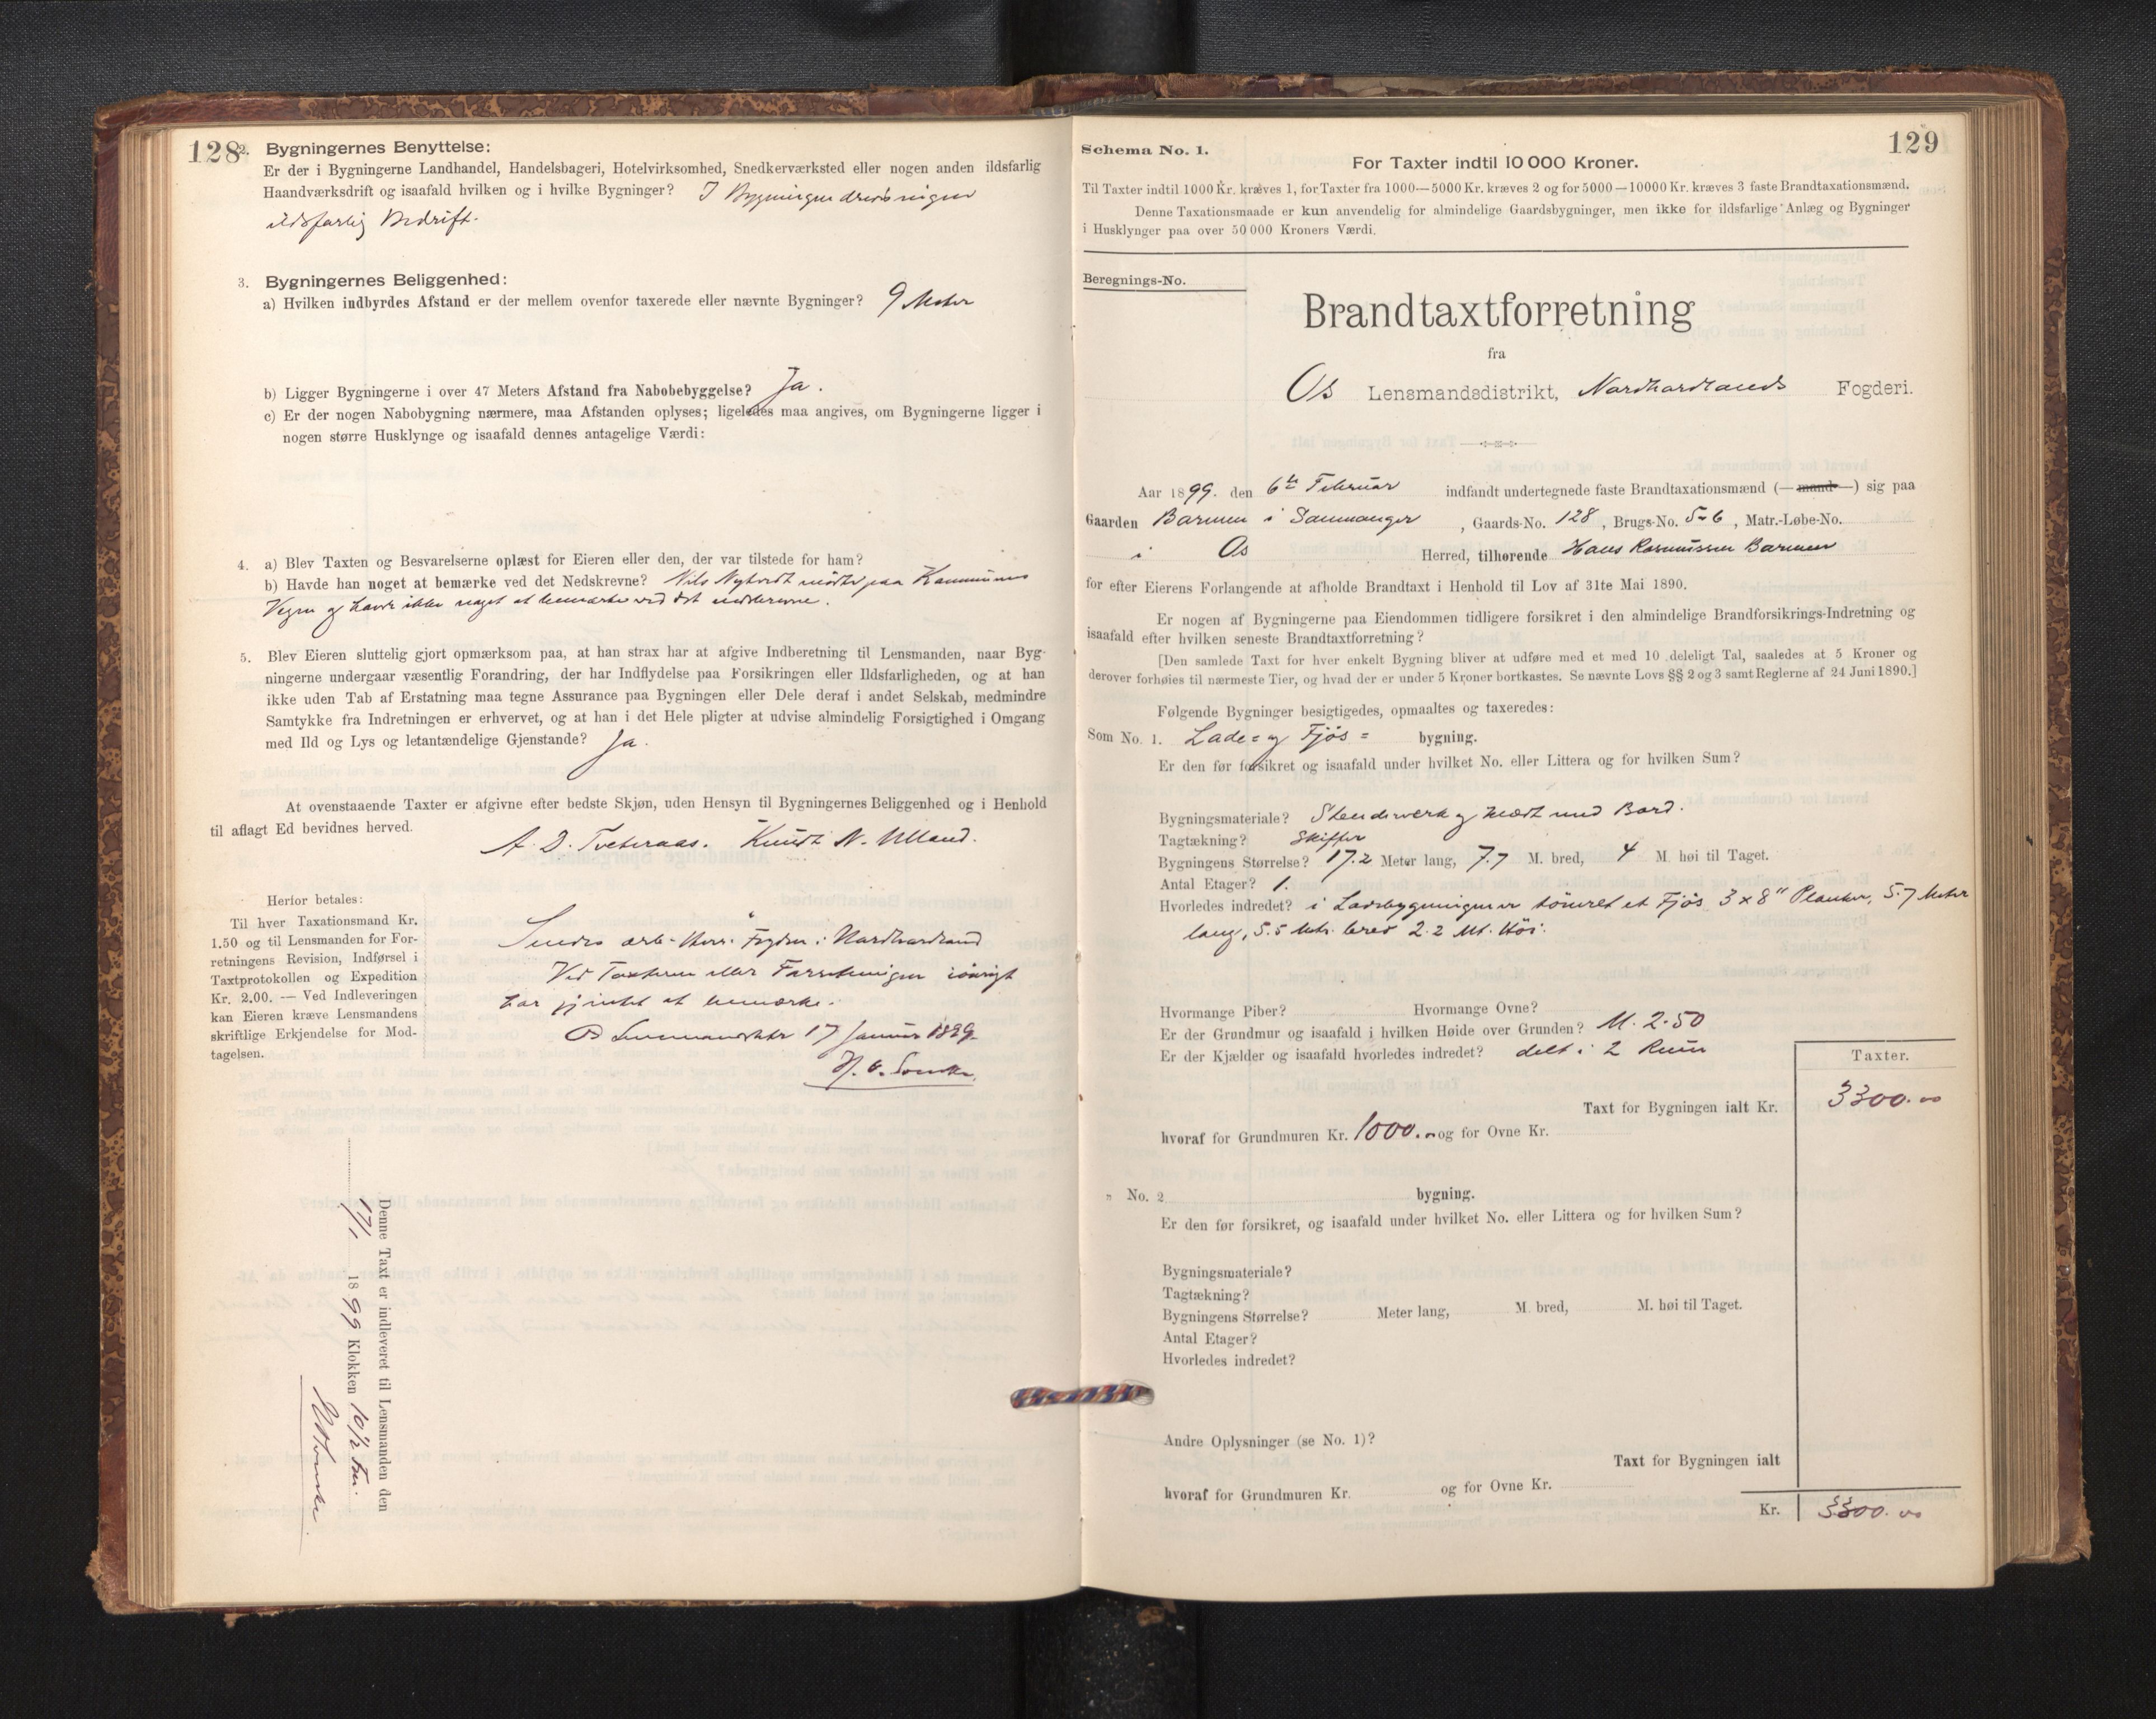 128
2. Bygningernes Benyttelse:
Er der i Bygningerne Landhandel, Handelsbageri, Hotelvirksomhed, Snedkerværksted eller nogen anden ildsfarlig
Haandværksdrift og isaafald hvilken og i hvilke Bygninger? I Bygningen
ildsfarlig Bedrift.
3. Bygningernes Beliggenhed:
a) Hvilken indbyrdes Afstand er der mellem ovenfor taxerede eller nævnte Bygninger? 9 Meter
b) Ligger Bygningerne i over 47 Meters Afstand fra Nabobebyggelse? Ja.
c) Er der nogen Nabobygning nærmere, maa Afstanden oplyses; ligeledes maa angives, om Bygningerne ligger i
nogen større Husklynge og isaafald dennes antagelige Værdi:
4. a) Blev Taxten og Besvarelserne oplæst for Eieren eller den, der var tilstede for ham?
b) Havde han noget at bemærke ved det Nedskrevne? Nils mødte paa Kommunens
Vegne og havde ikke noget at bemærke ved det nedskrevne.
5. Blev Eieren sluttelig gjort opmærksom paa, at han strax har at afgive Indberetning til Lensmanden, naar Byg-
ningerne undergaar væsentlig Forandring, der har Indflydelse paa Forsikringen eller Ildsfarligheden, og at han
ikke uden Tab af Erstatning maa tegne Assurance paa Bygningen eller Dele deraf i andet Selskab, medmindre
Samtykke fra Indretningen er erhvervet, og at han i det Hele pligter at udvise almindelig Forsigtighed i Omgang
med Ild og Lys og letantændelige Gjenstande? Ja.
At ovenstaaende Taxter er afgivne efter bedste Skjøn, uden Hensyn til Bygningernes Beliggenhed og i Henhold
til aflagt Ed bevidnes herved.
A. D. Tveteraas. Knudt N. Ulland.
Herfor betales:
Til hver Taxationsmand Kr.
1.50 og til Lensmanden for For-
retningens Revision, Indførsel i
Taxtprotokollen og Expedition
Kr. 2.00. — Ved Indleveringen
kan Eieren kræve Lensmandens
skriftlige Erkjendelse for Mod-
tagelsen.
Sendes ærb. Herr Fogden i Nordhordland
Ved Taxterne eller Forretningen iøvrigt
har jeg intet at bemærke.
Os Lensmandsktr 17 Januar 1899
Denne Taxt er indleveret til Lensmanden den
17/1 1899 Klokken 10½ Fm.
129
Schema No. 1.
For Taxter indtil 10 000 Kroner.
Til Taxter indtil 1000 Kr. kræves 1, for Taxter fra 1000—5000 Kr. kræves 2 og for 5000—10000 Kr. kræves 3 faste Brandtaxationsmænd.
Denne Taxationsmaade er kun anvendelig for almindelige Gaardsbygninger, men ikke for ildsfarlige Anlæg og Bygninger
i Husklynger paa over 50 000 Kroners Værdi.
Beregnings-No.
Brandtaxtforretning
fra
Os Lensmandsdistrikt, Nordhordlands Fogderi.
Aar 1899. den 6te Februar indfandt undertegnede faste Brandtaxationsmænd (—mand—) sig paa
Gaarden Barmen i Samnanger, Gaards-No. 128, Brugs-No. 5-6, Matr.-Løbe-No.
i Os Herred, tilhørende Hans Rasmussen Barmen
for efter Eierens Forlangende at afholde Brandtaxt i Henhold til Lov af 31te Mai 1890.
Er nogen af Bygningerne paa Eiendommen tidligere forsikret i den almindelige Brandforsikrings-Indretning og
isaafald efter hvilken seneste Brandtaxtforretning?
[Den samlede Taxt for hver enkelt Bygning bliver at udføre med et med 10 deleligt Tal, saaledes at 5 Kroner og
derover forhøies til nærmeste Tier, og hvad der er under 5 Kroner bortkastes. Se nævnte Lovs §§ 2 og 3 samt Reglerne af 24 Juni 1890.]
Følgende Bygninger besigtigedes, opmaaltes og taxeredes:
Som No. 1. Lade= og Fjøs= bygning.
Er den før forsikret og isaafald under hvilket No. eller Littera og for hvilken Sum?
Bygningsmateriale? Stenderverk og klædt med Bord.
Tagtækning? Skiffer
Bygningens Størrelse? 17.2 Meter lang, 7.7 M. bred, 4 M. høi til Taget.
Antal Etager? 1.
Hvorledes indredet? i Ladebygningen er tømret et Fjøs 3 x 8" Planker, 5.7 Meter
lang, 5.5 Mtr. bred 2.2 Mt. Høi.
Hvormange Piber? Hvormange Ovne?
Er der Grundmur og isaafald i hvilken Høide over Grunden? M. 2.50
Er der Kjælder og isaafald hvorledes indredet? delt i 2 Rum
Taxter.
Taxt for Bygningen ialt Kr. 3300.00
hvoraf for Grundmuren Kr. 1000.00 og for Ovne Kr.
" No. 2 bygning.
Er den før forsikret, og isaafald under hvilket No. eller Littera og for hvilken Sum?
Bygningsmateriale?
Tagtækning?
Bygningens Størrelse? Meter lang, M. bred, M. høi til Taget.
Antal Etager?
Hvorledes indredet?
Andre Oplysninger (se No. 1)?
Taxt for Bygningen ialt
hvoraf for Grundmuren Kr. og for Ovne Kr.
Kr. 3300.00